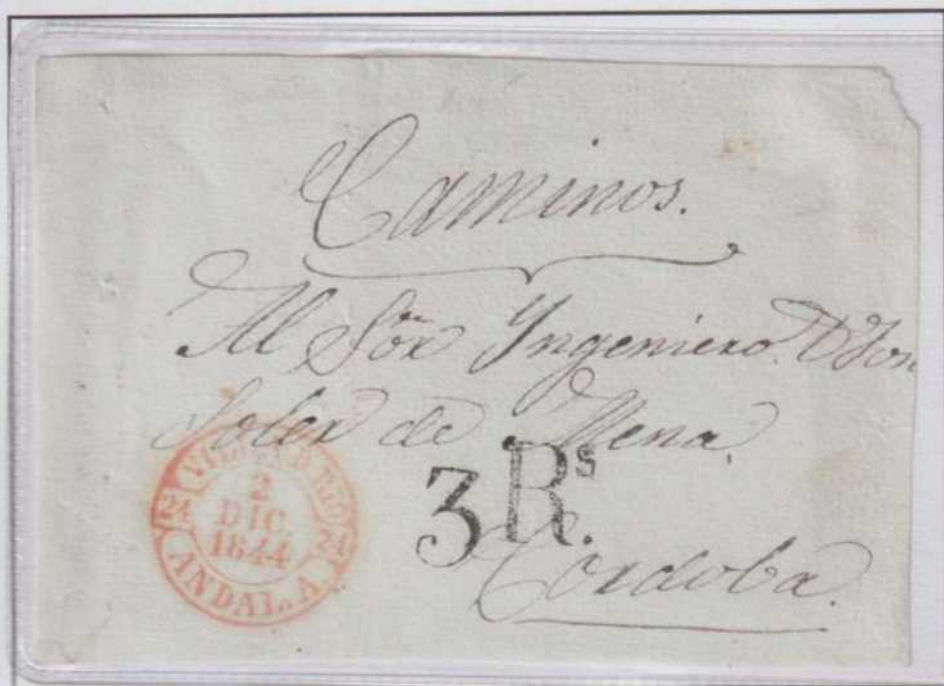 Caminos.
Al Sor Ingeniero D Jon
Soler de Mena,
3 Rs.
Cordoba.
VILLA D. RIO
24 2 24
DIC.
1844
ANDAL. A.